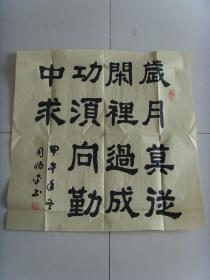 歲月莫從
閑裡過成
功須向勤
中求
甲午